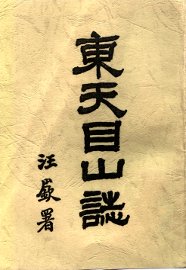 東天目山誌
汪 署